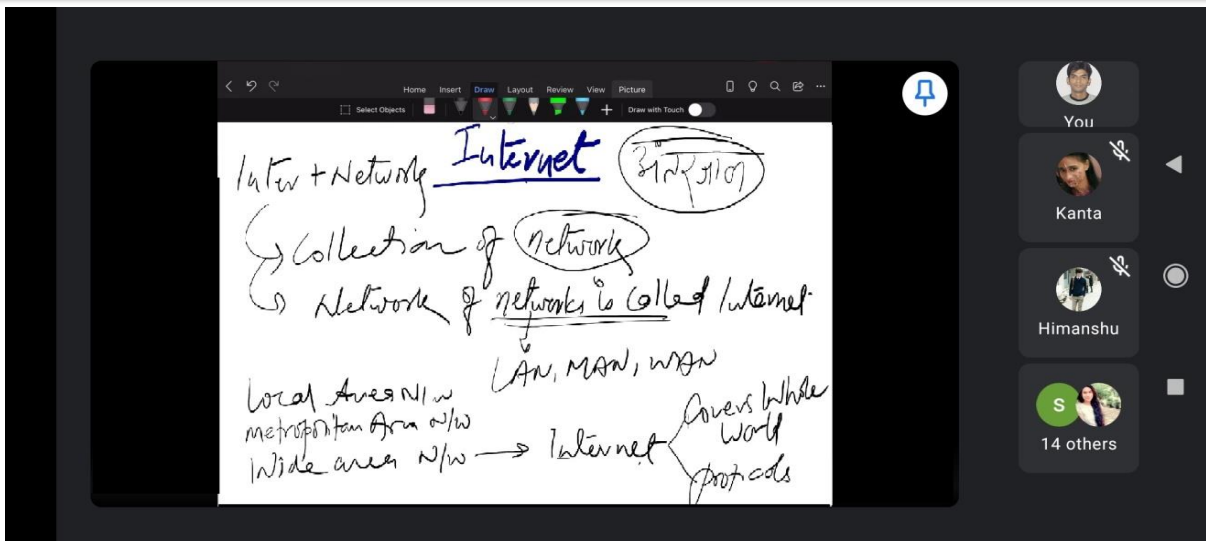 Home Insert Draw Layout Review View Picture
Select Objects Draw with Touch
Internet
Inter + Network
अंतरजाल
Collection of network
Network of networks is called Internet.
LAN, MAN, WAN
Local Area N/w
Metropolitan Area N/w
Wide area N/w → Internet
Covers Whole
World
protocols
You
Kanta
Himanshu
S
14 others